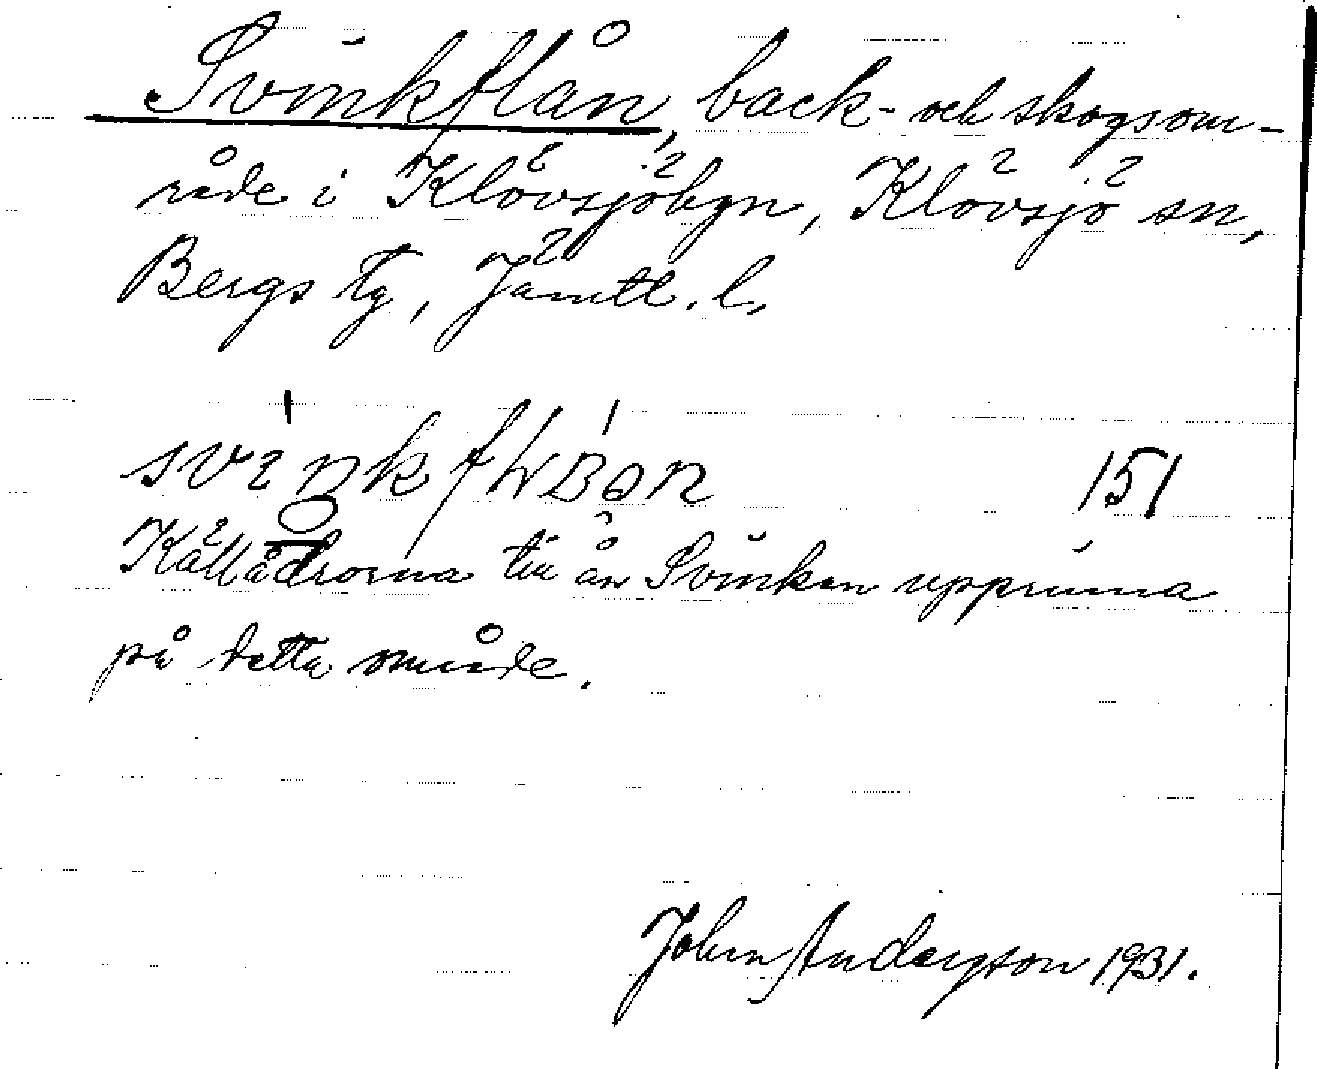 Svinkflån, back- och skogsom-
råde i Klövsjöbyn, Klövsjö sn,
Bergs tg, Jämtl. l.
151
Källådrorna till ån Svinkan upprinna
på detta område.
John Andersson 1931.